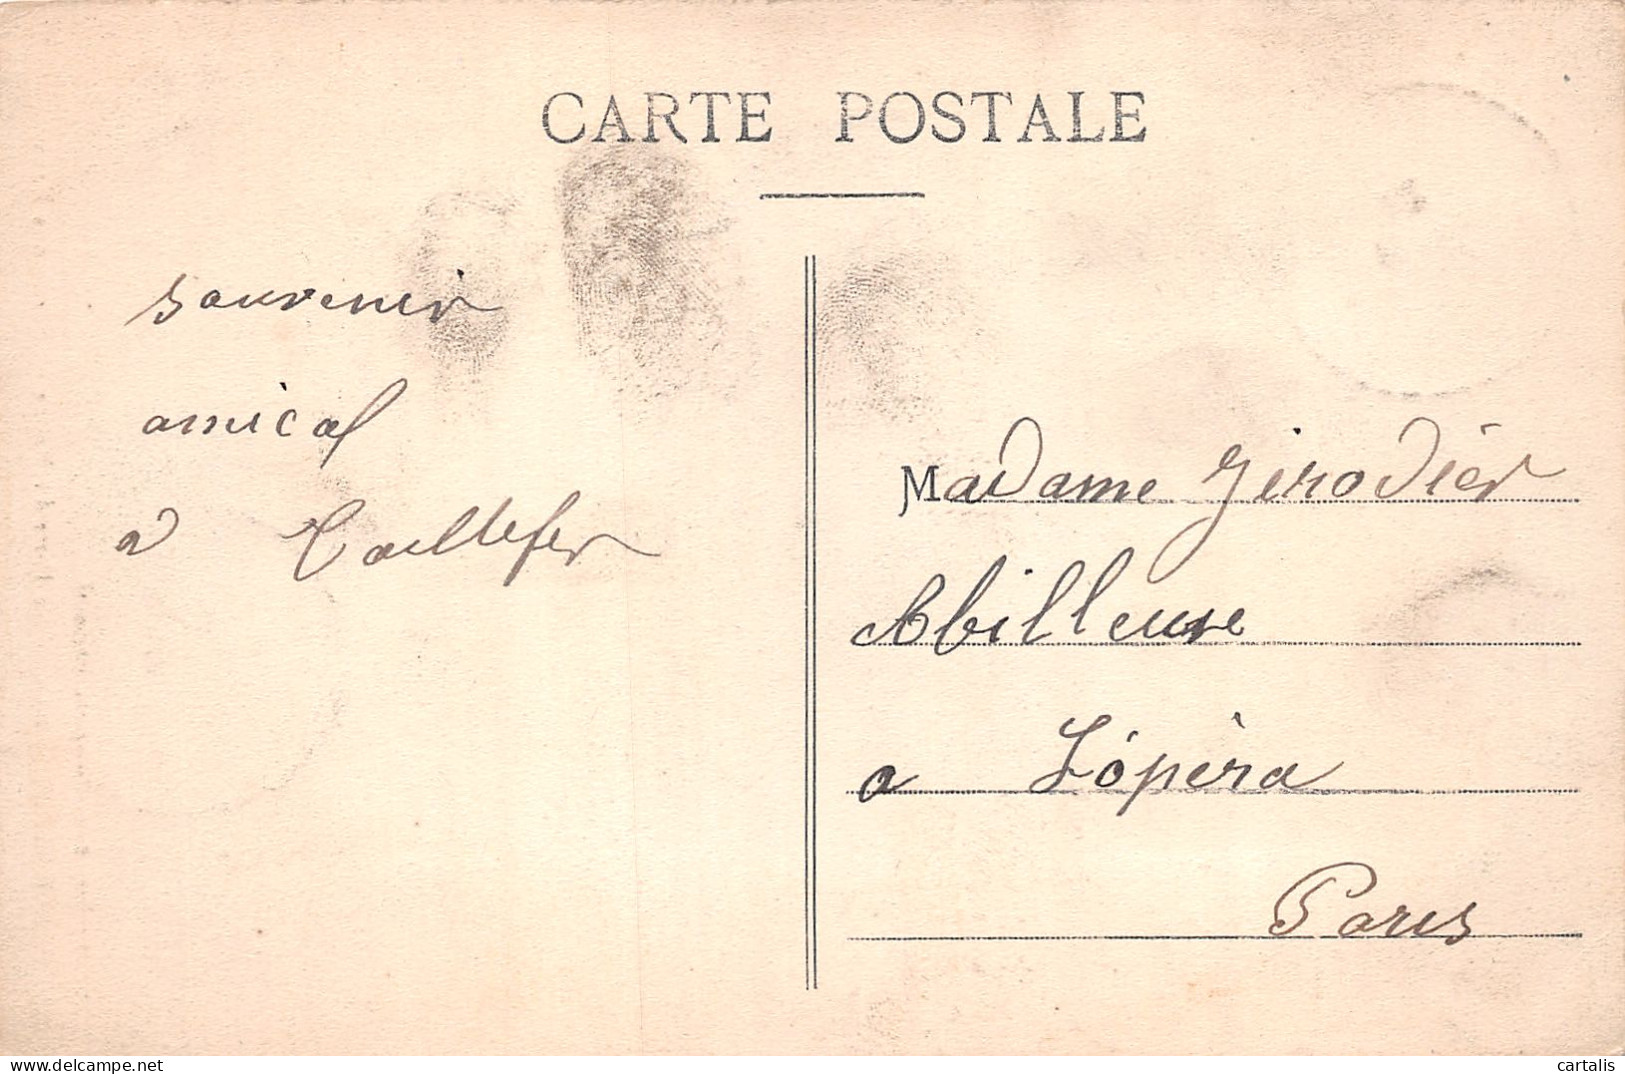 CARTE POSTALE
souvenir
amical
a Taillefer
Madame Girodier
Abilleuse
a L'ópèra
Paris
delcampe.net
cartalis